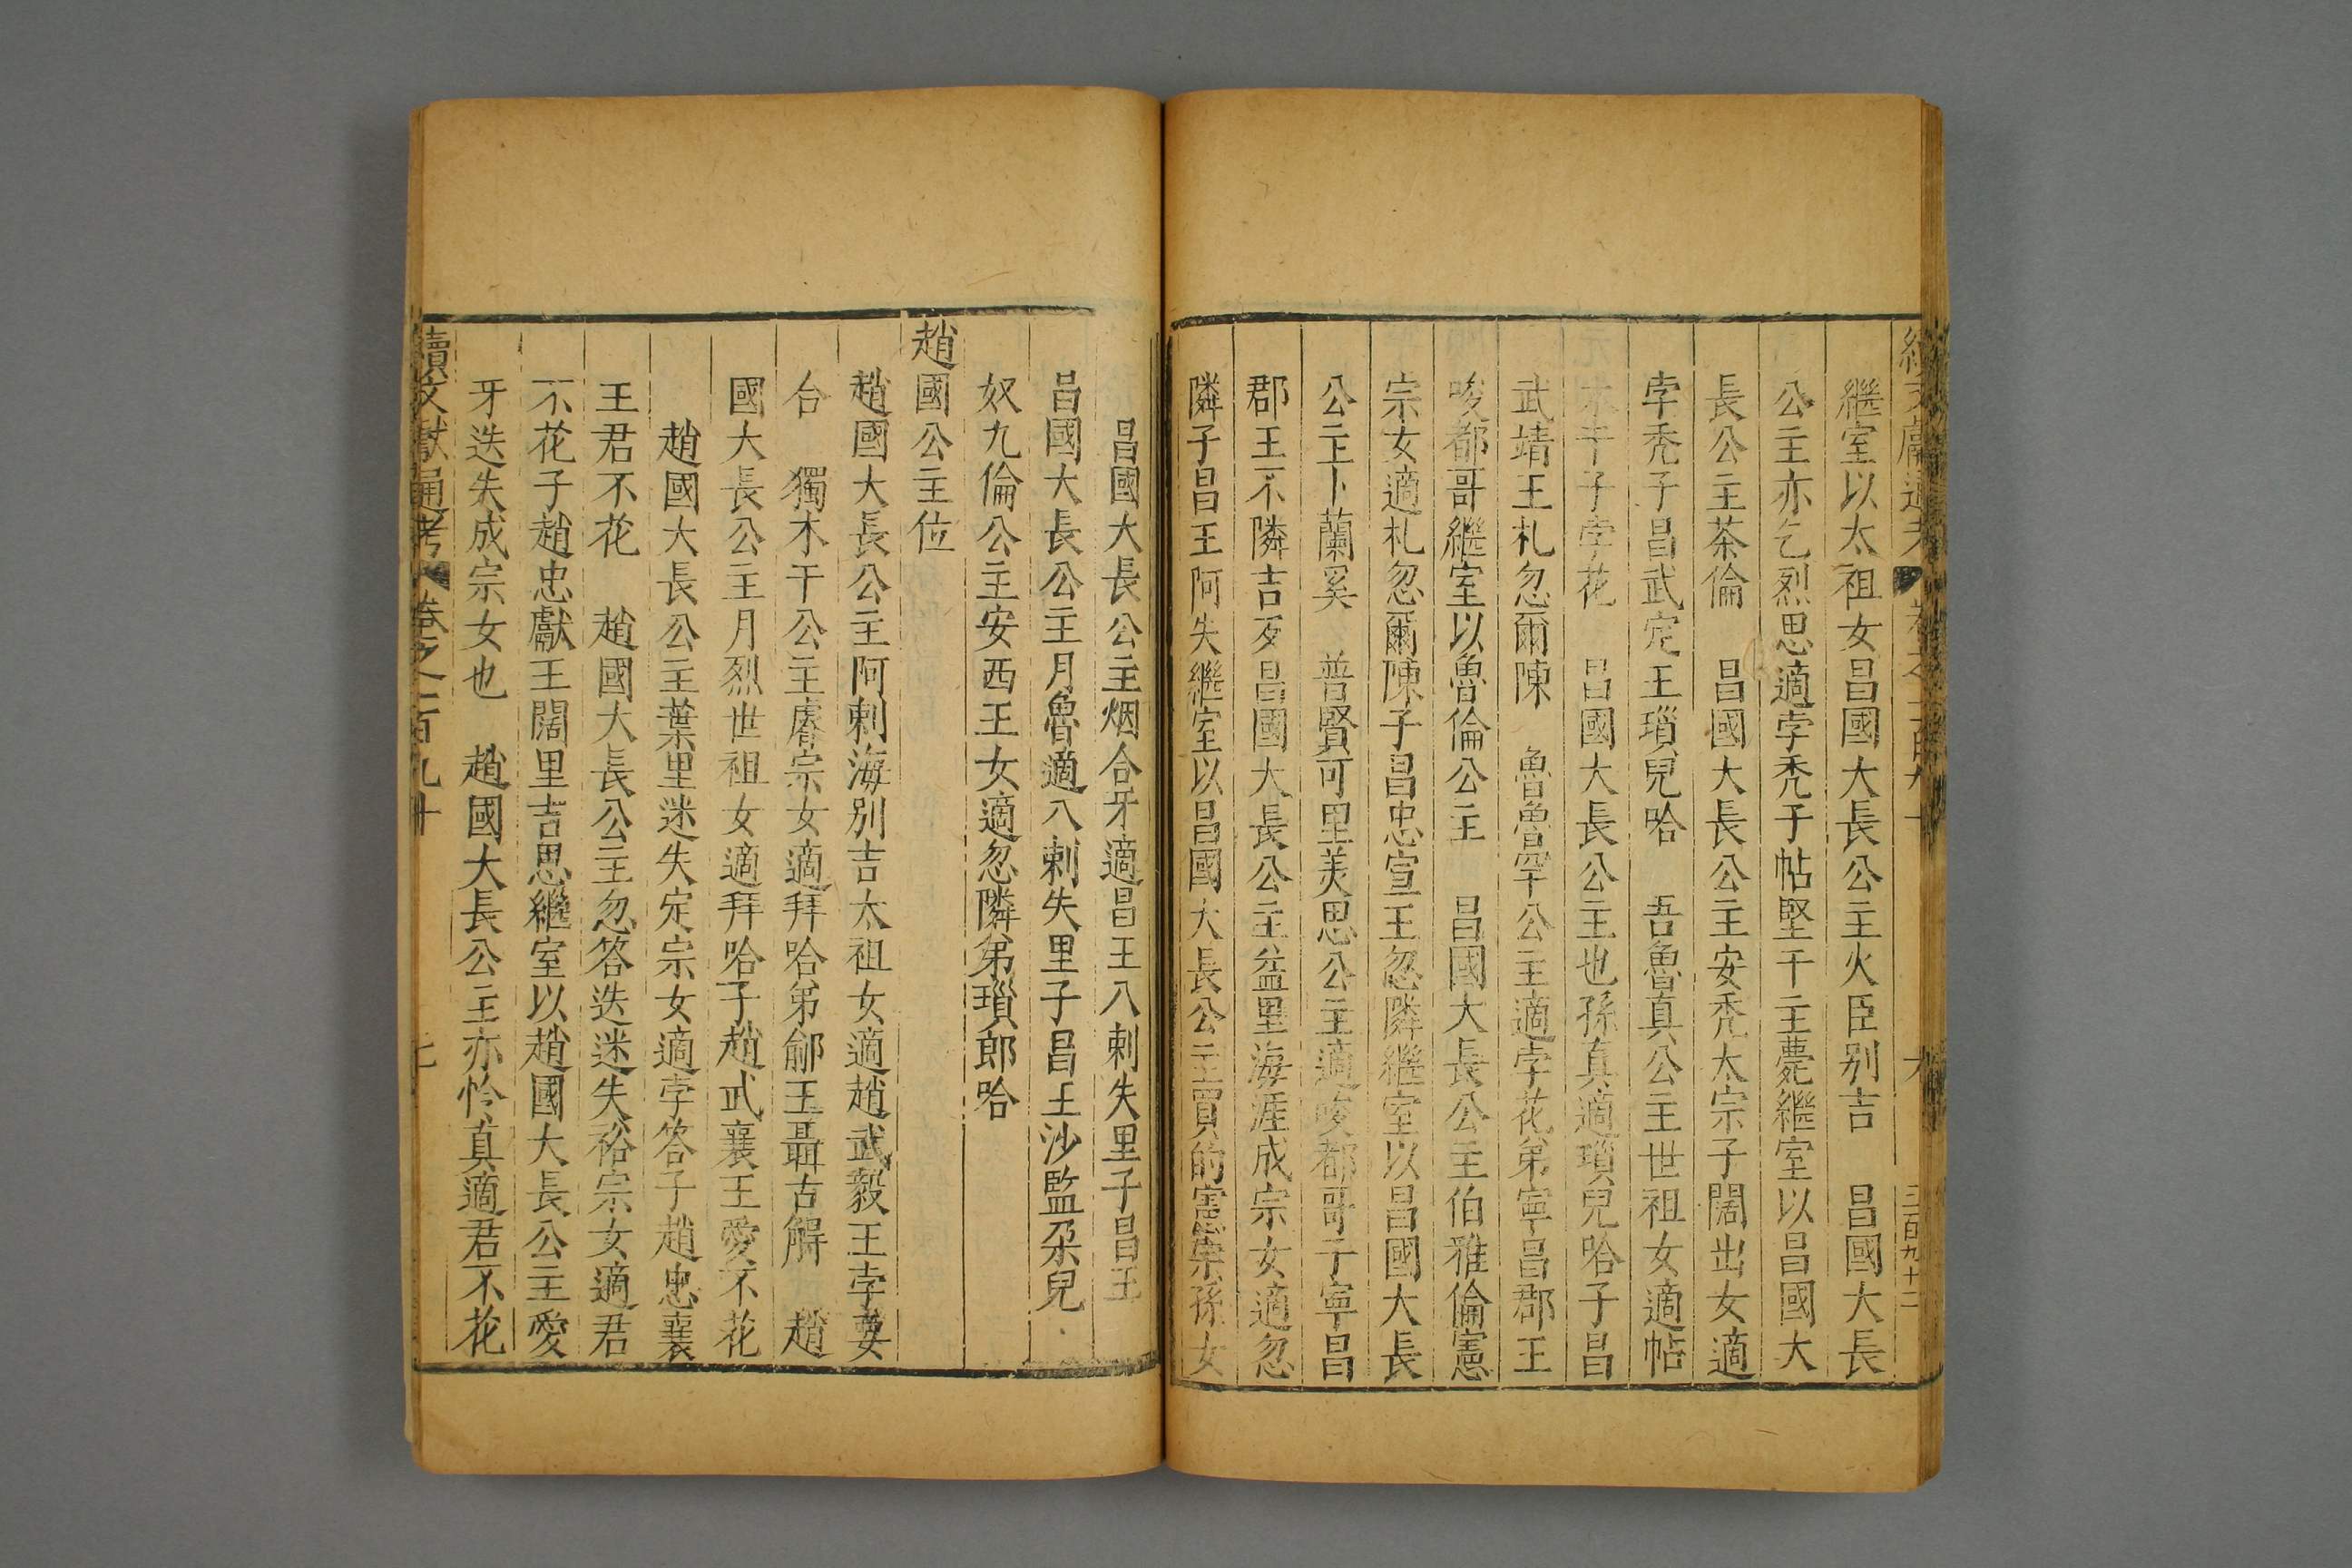 續文獻通考 卷之二百九十 六 三百九十二
繼室以太祖女昌國大長公主火臣别吉 昌國大長
公主亦乞烈思適孛秃子帖堅干主薨繼室以昌國大
長公主茶倫 昌國大長公主安秃太宗子闊出女適
孛秃子昌武定王瑣兒哈 吾魯真公主世祖女適帖
木干子孛花 昌國大長公主也孫真適瑣兒哈子昌
武靖王札忽爾陳 魯魯罕公主適孛花弟寧昌郡王
唆都哥繼室以魯倫公主 昌國大長公主伯雅倫憲
宗女適札忽爾陳子昌忠宣王忽隣繼室以昌國大長
公主卜蘭奚 普賢可里美思公主適唆都哥子寧昌
郡王不隣吉歹昌國大長公主益里海涯成宗女適忽
隣子昌王阿失繼室以昌國大長公主買的憲宗孫女
昌國大長公主烟合牙適昌王八剌失里子昌王
昌國大長公主月魯適八剌失里子昌王沙監朶兒
奴兀倫公主安西王女適忽隣弟瑣郎哈
趙國公主位
趙國大長公主阿剌海别吉太祖女適趙武毅王孛要
合 獨木干公主睿宗女適拜哈弟鄃王聶古䚟 趙
國大長公主月烈世祖女適拜哈子趙武襄王愛不花
趙國大長公主葉里迷失定宗女適孛答子趙忠襄
王君不花 趙國大長公主忽答迭迷失裕宗女適君
不花子趙忠獻王闊里吉思繼室以趙國大長公主愛
牙迭失成宗女也 趙國大長公主亦怜真適君不花
續文獻通考 卷之二百九十 七